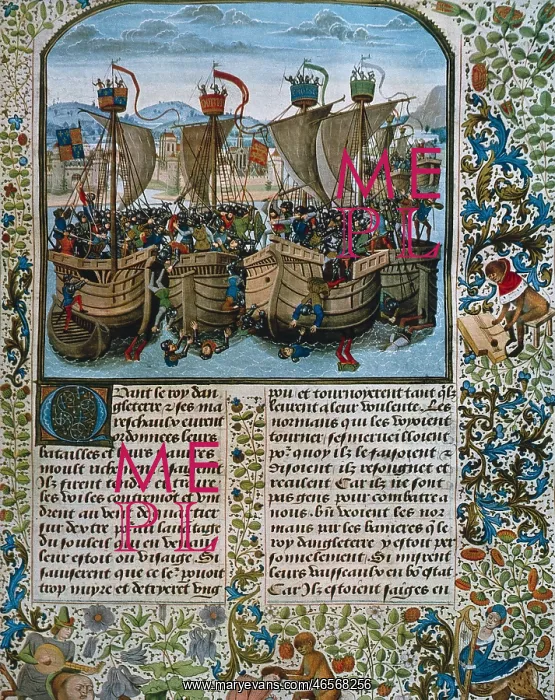 ME
PL
Quant le roy dan
gleterre & ses ma
reschaulx eurent
ordonnees leurs
batailles et leurs
moult
Ilz firent
les voiles contremont et
drent au vent de
sur dextre pour lauantage
du souleil qui en venant
leur estoit ou visaige. Si
sauiserent que ce les pouoit
trop nuyre et detryerent vng
pou et tournoyerent tant qlz
leurent a leur voulente. Les
normans qui les veoient
tourner sesmerueilloient
pour quoy ilz le faisoient &
disoient ilz resongnet et
reculent Car ilz ne sont
pas gens pour combatre a
nous. bn veoient les nor
mans par les banieres q le
roy dangleterre y estoit per
sonnelement. Si misrent
leurs vaisseaulx en bo estat
Car Ilz estoient saiges en
ME
PL
www.maryevans.com/46568256